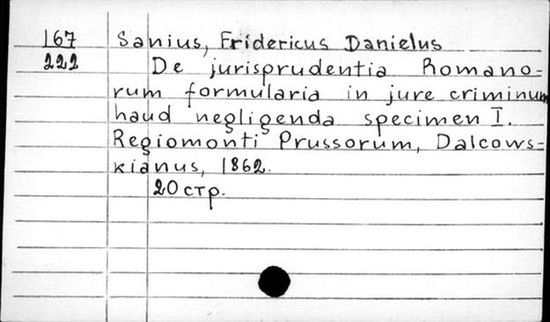 167 Sanius, Fridericus Danielus
222 De jurisprudentia Romano-
rum formularia in jure criminum
haud negligenda specimen I.
Regiomonti Prussorum, Dalcows-
kianus, 1862.
20 стр.